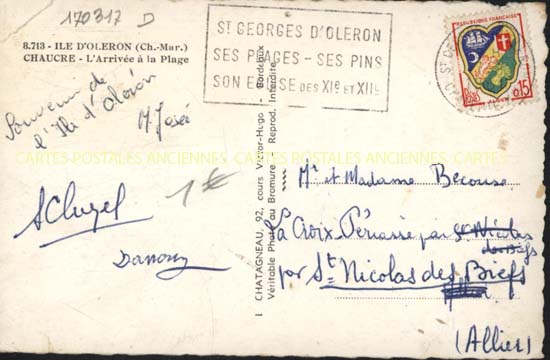 170317 D
8.713 - ILE D'OLERON (Ch.-Mar.)
CHAUCRE - L'Arrivée à la Plage
Souvenir de
l'Ile d'Oléron
M. Josée
ST GEORGES D'OLERON
SES PLAGES - SES PINS
SON EGLISE DES XIe ET XIIe
REPUBLIQUE FRANÇAISE
POSTES
ALGER
0,15
CARTES POSTALES ANCIENNES CARTES POSTALES ANCIENNES CARTES POSTALES ANCIENNES
1 €
I CHATAGNEAU, 92, cours Victor-Hugo - Bordeaux
Véritable Photo au Bromure - Reprod. Interdite
Mr et Madame Becouse
La Croix Périassé par St Nicolas
des Biefs
par St Nicolas des Biefs
(Allier)